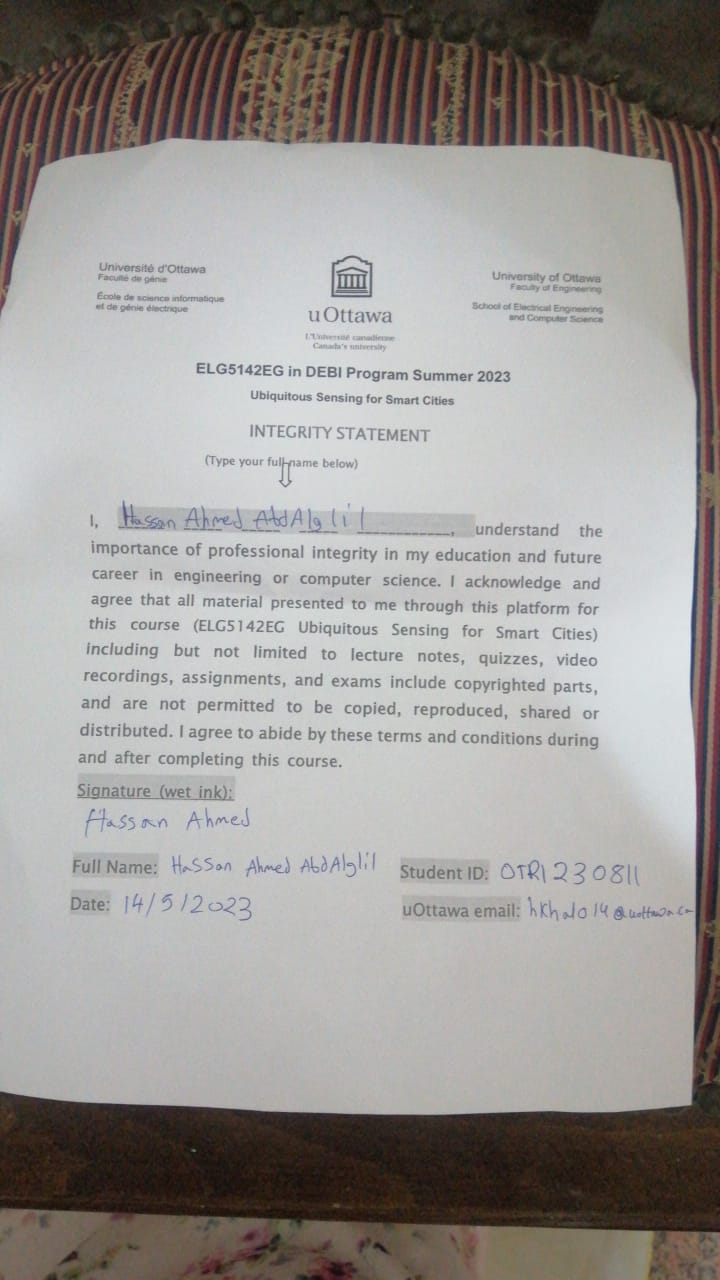 Université d'Ottawa
Faculté de génie
École de science informatique
et de génie électrique
uOttawa
L'Université canadienne
Canada's university
University of Ottawa
Faculty of Engineering
School of Electrical Engineering
and Computer Science
ELG5142EG in DEBI Program Summer 2023
Ubiquitous Sensing for Smart Cities
INTEGRITY STATEMENT
(Type your full name below)
I, Hassan Ahmed AbdAlglil, understand the
importance of professional integrity in my education and future
career in engineering or computer science. I acknowledge and
agree that all material presented to me through this platform for
this course (ELG5142EG Ubiquitous Sensing for Smart Cities)
including but not limited to lecture notes, quizzes, video
recordings, assignments, and exams include copyrighted parts,
and are not permitted to be copied, reproduced, shared or
distributed. I agree to abide by these terms and conditions during
and after completing this course.
Signature (wet ink):
Hassan Ahmed
Full Name: Hassan Ahmed AbdAlglil Student ID: OTR1230811
Date: 14/5/2023 uOttawa email: